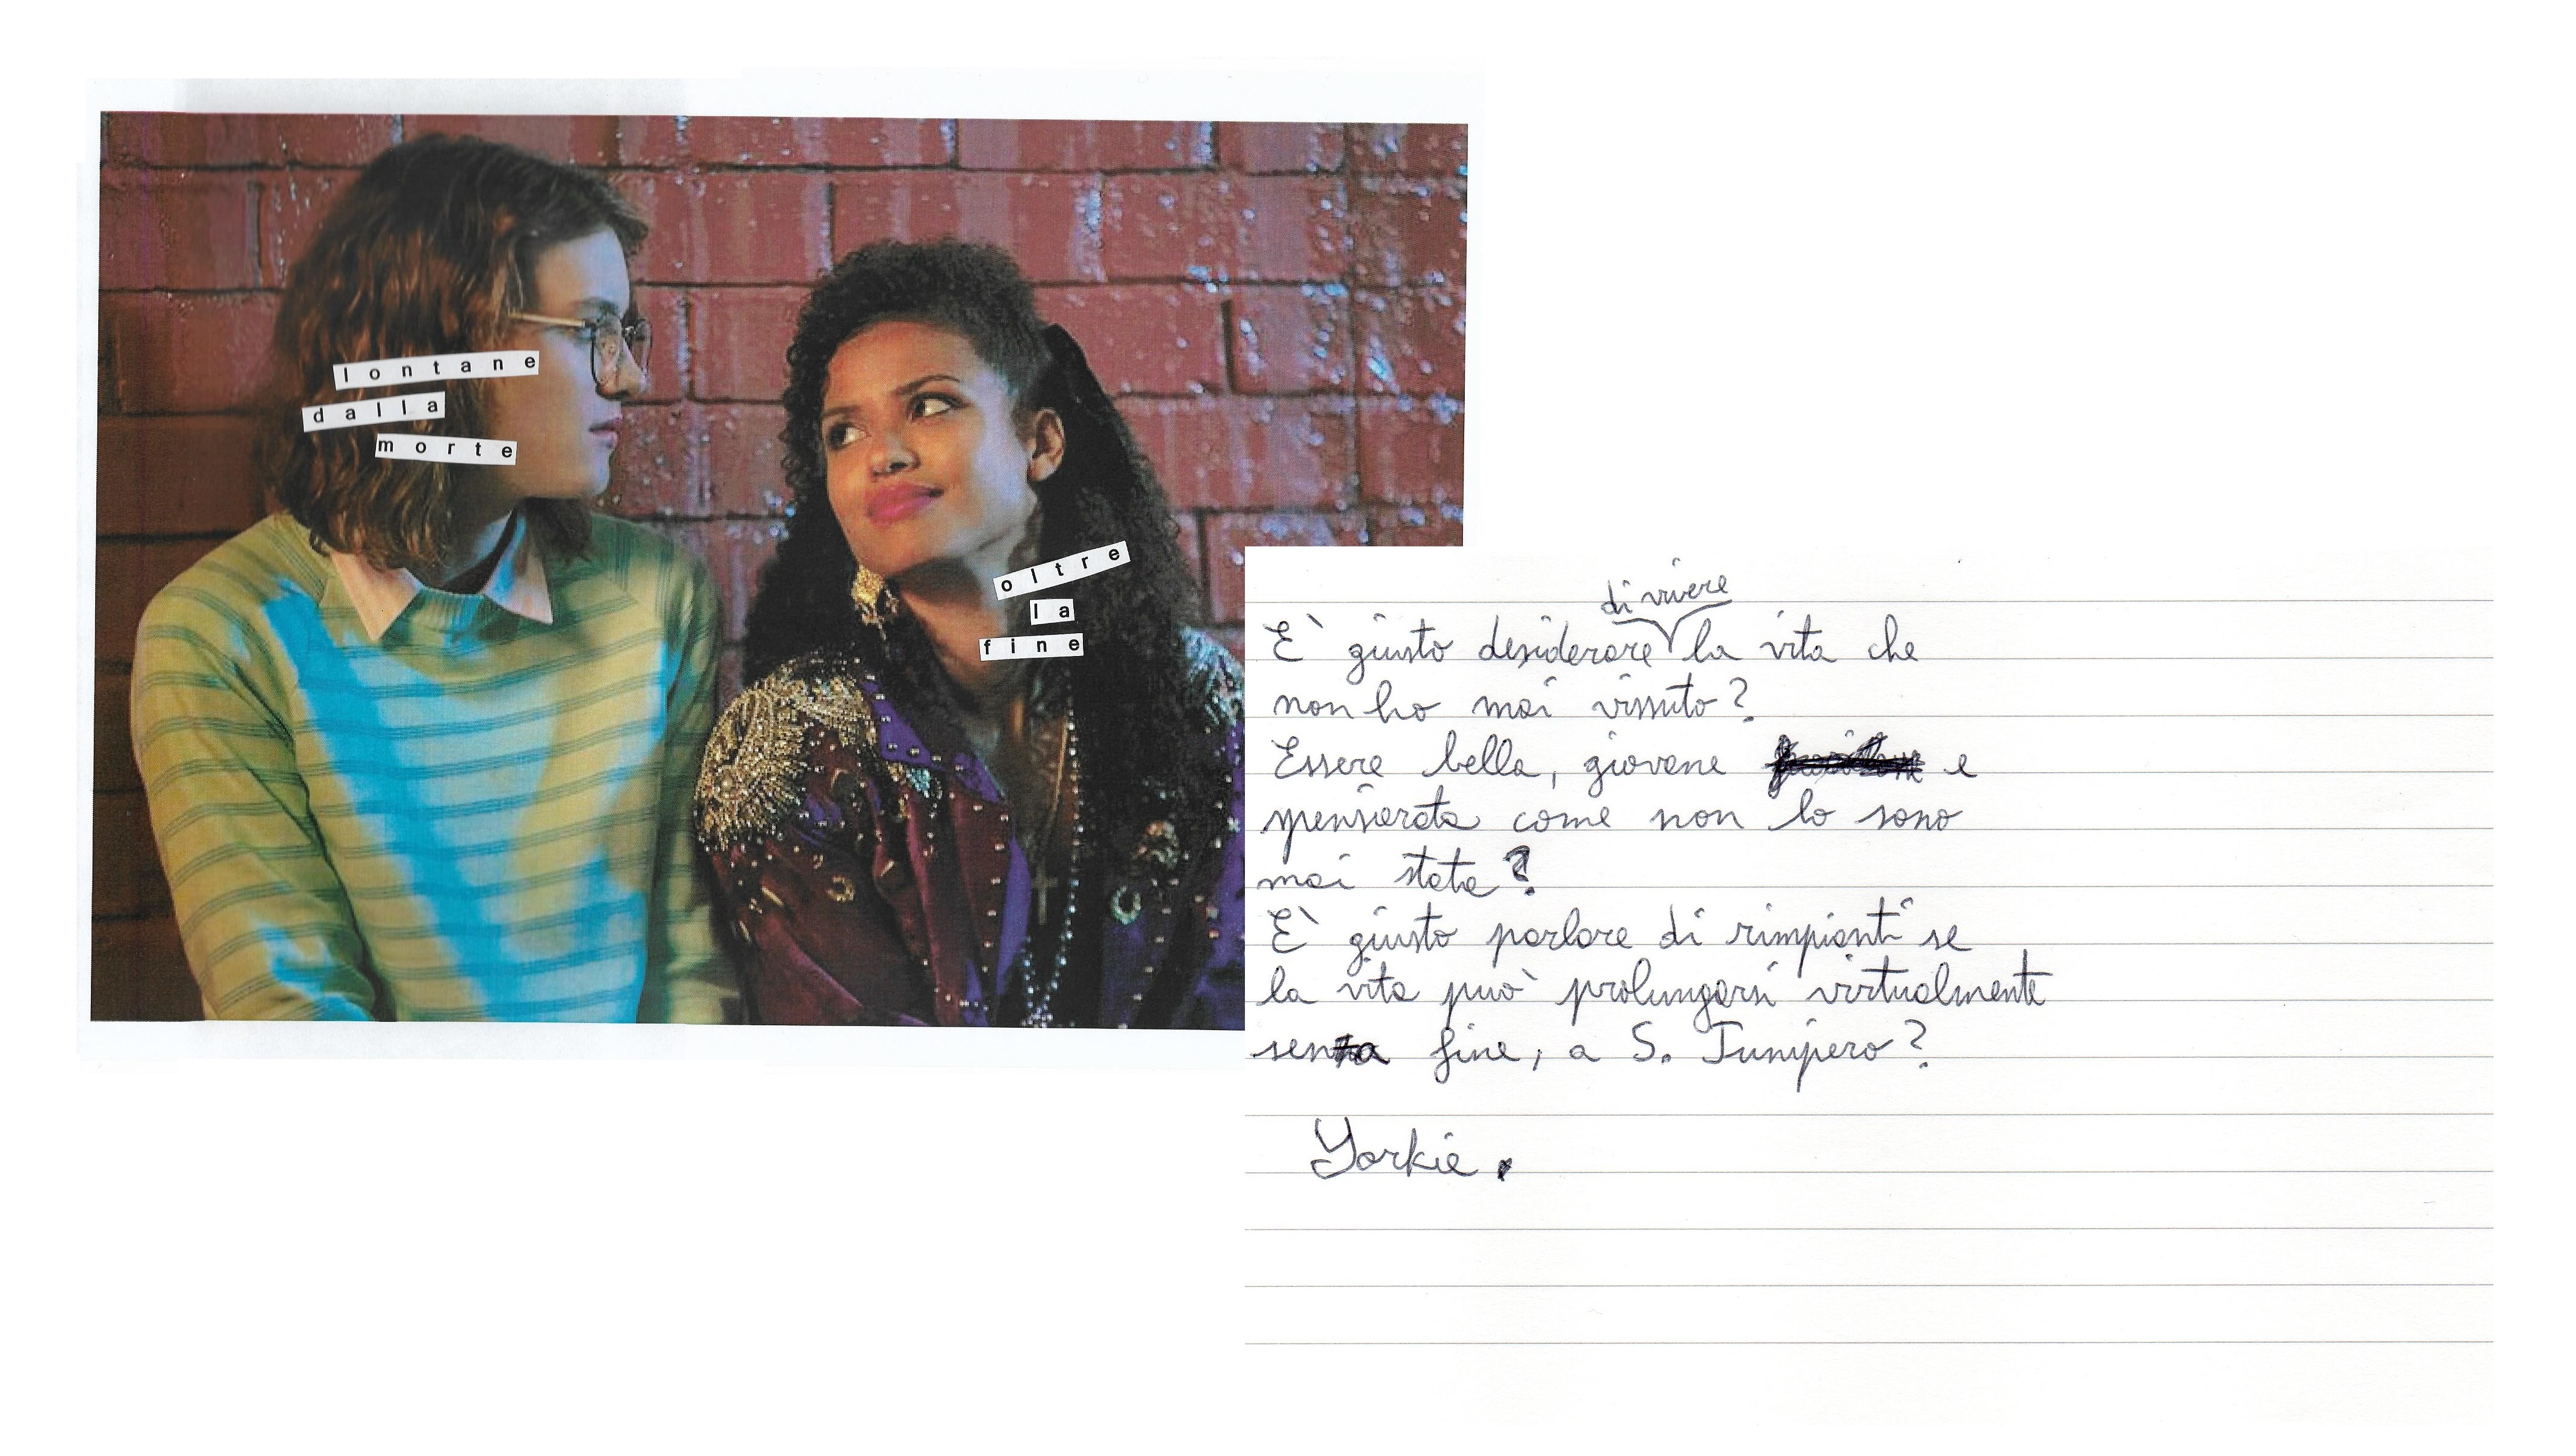 lontane
dalla
morte
oltre
la
fine
di vivere
È giusto desiderare la vita che
non ho mai vissuto?
Essere bella, giovane e
spensierata come non lo sono
mai stata?
È giusto parlare di rimpianti se
la vita può prolungarsi virtualmente
senza fine, a S. Junipero?
Yorkie.